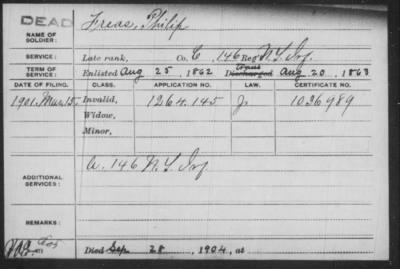 DEAD
NAME OF SOLDIER: Freas, Philip
SERVICE: Late rank, Co. C, 146 Reg N.Y. Inf.
TERM OF SERVICE: Enlisted Aug 25, 1862 Trans Discharged Aug 20, 1863
DATE OF FILING. CLASS. APPLICATION NO. LAW. CERTIFICATE NO.
1901. Mar. 15. Invalid, 1264.145 1036989
Widow,
Minor,
ADDITIONAL SERVICES: 146 N.Y. Inf
REMARKS:
Died Sep 28, 1904, at